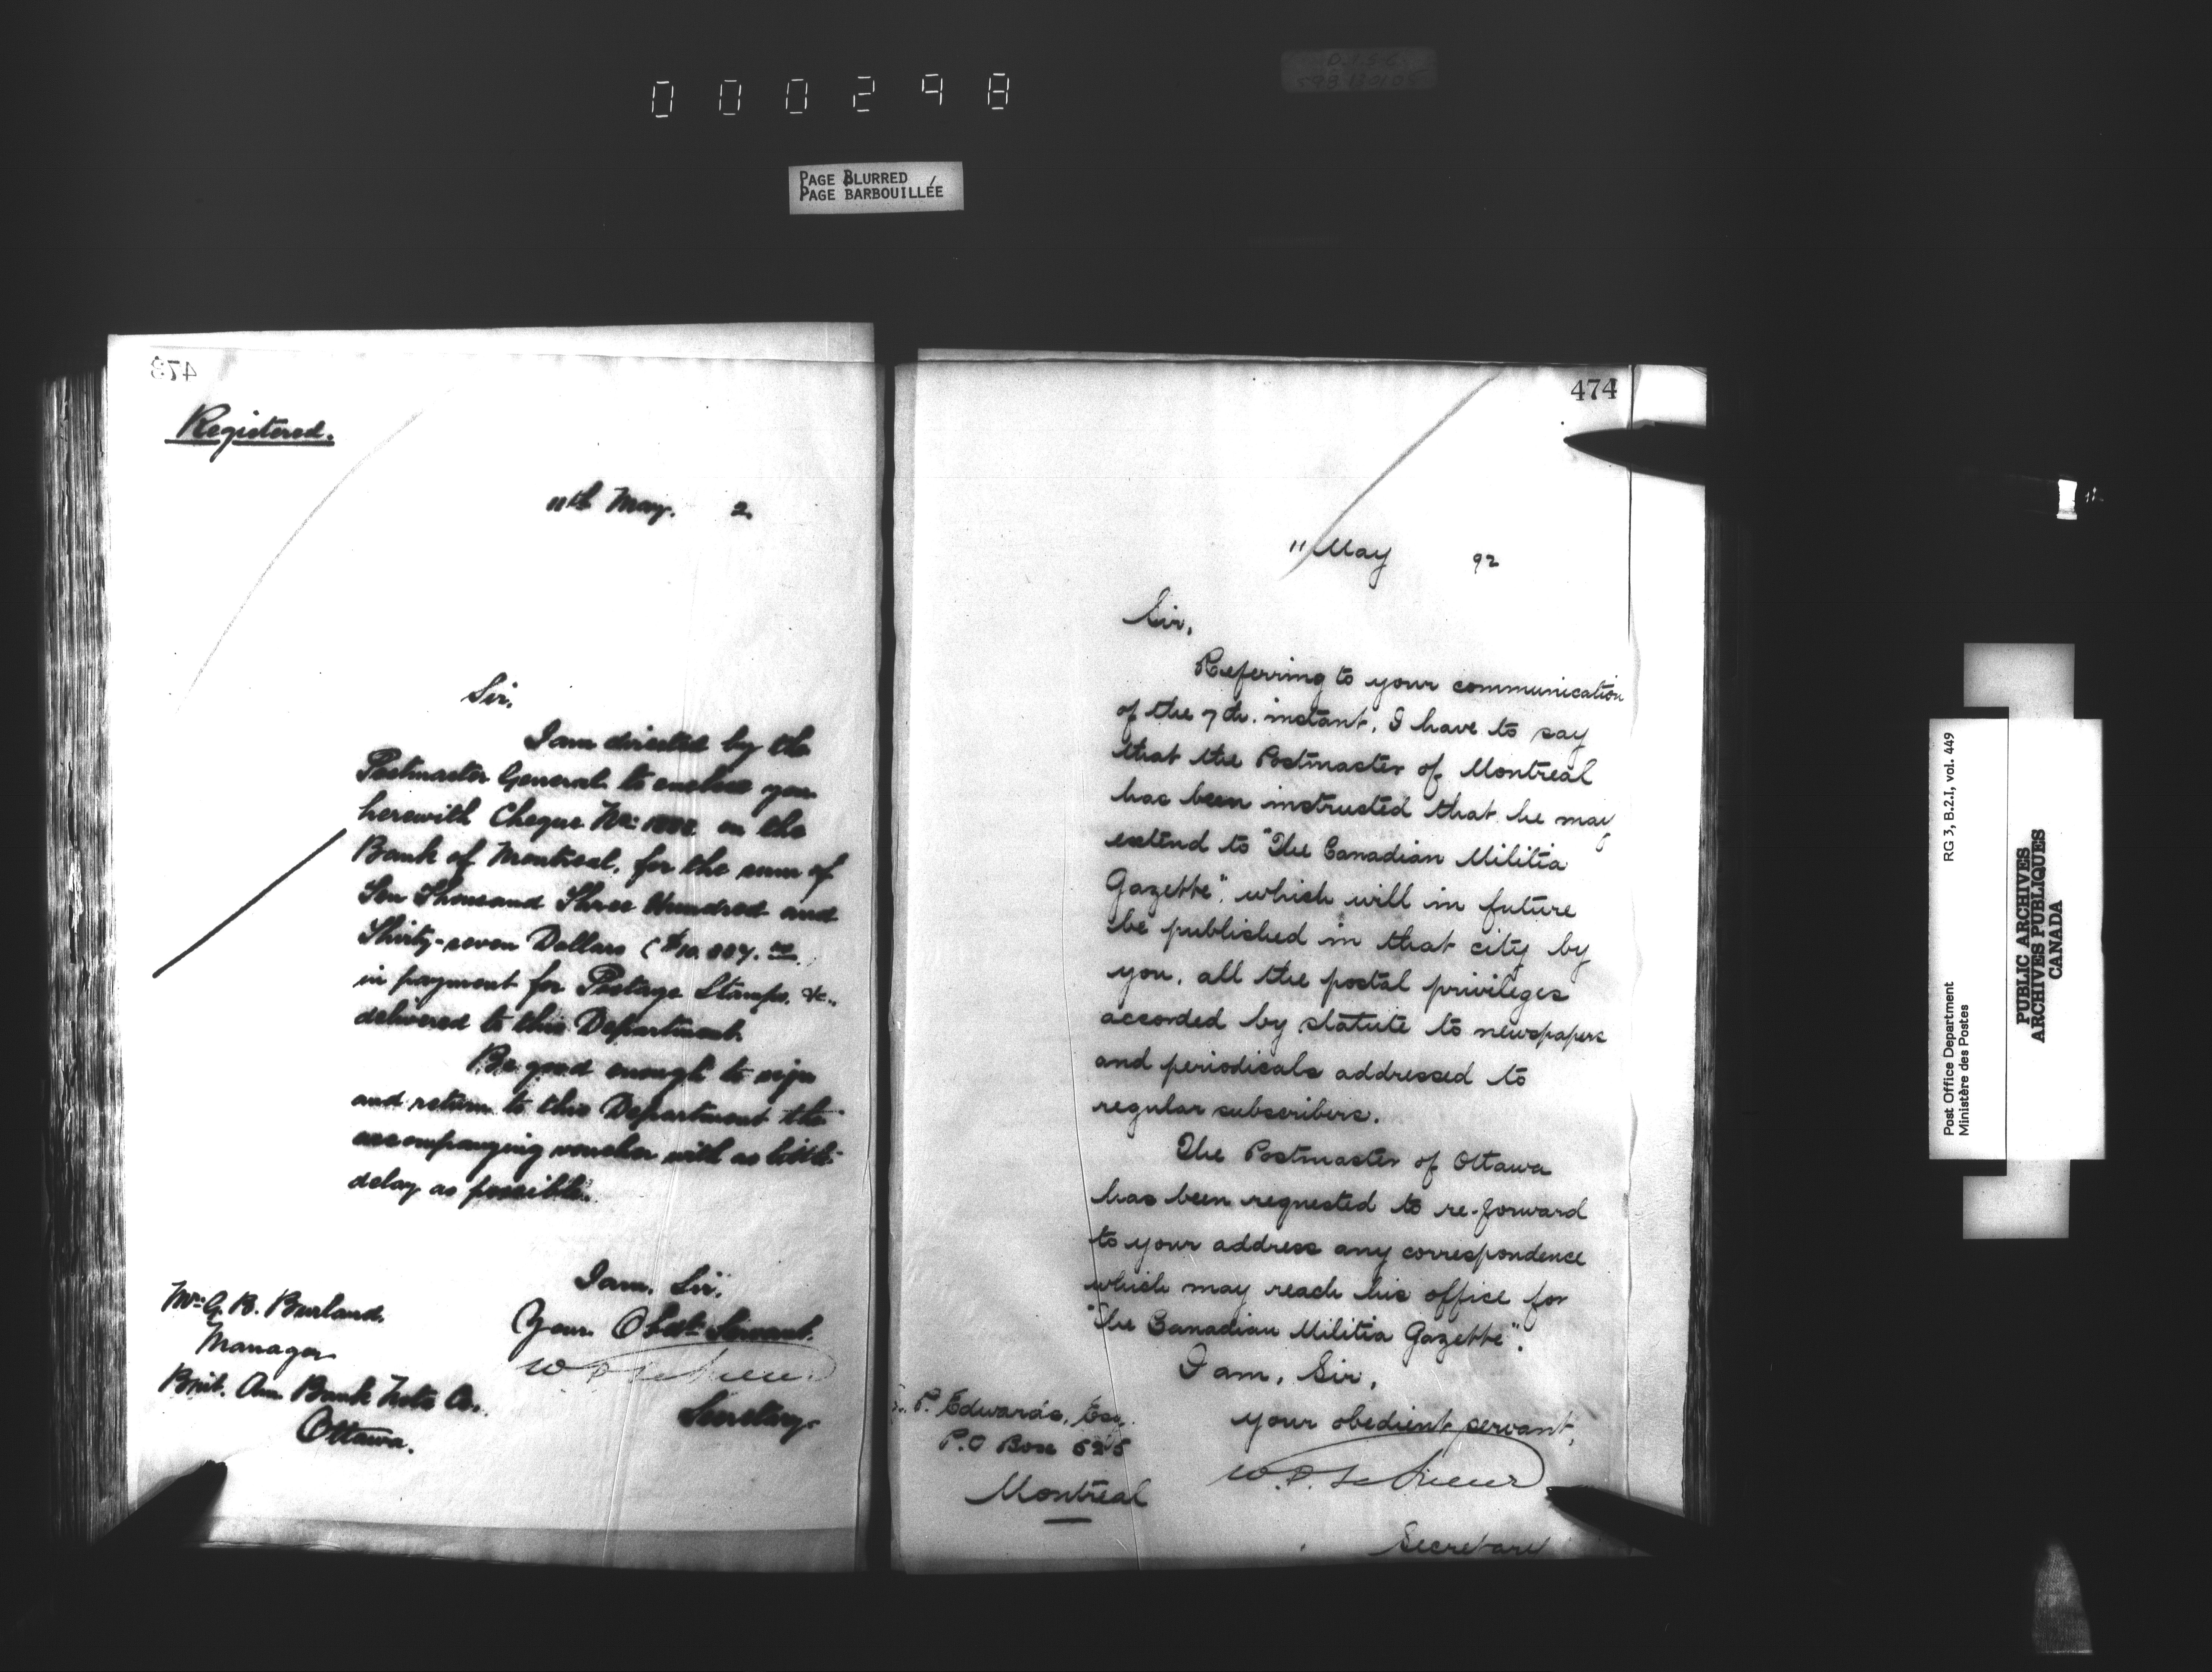 000298
PAGE BLURRED
PAGE BARBOUILLÉE
473
Registered.
11th May. 2.
Sir,
I am directed by the
Postmaster General to enclose you
herewith Cheque No: on the
Bank of Montreal, for the sum of
Ten Thousand Three Hundred and
Thirty-seven Dollars (
in payment for Postage Stamps, &c.,
delivered to this Department.
Be good enough to sign
and return to this Department the
accompanying voucher with as little
delay as possible.
I am, Sir,
Your Obedt. Servant.
Secretary.
Mr. G. B. Burland,
Manager
Brit. Am. Bank Note Co.,
Ottawa.
474
11 May 92
Sir,
Referring to your communication
of the 7th. instant, I have to say
that the Postmaster of Montreal
has been instructed that he may
extend to "The Canadian Militia
Gazette", which will in future
be published in that city by
you, all the postal privileges
accorded by statute to newspapers
and periodicals addressed to
regular subscribers.
The Postmaster of Ottawa
has been requested to re-forward
to your address any correspondence
which may reach his office for
"The Canadian Militia Gazette".
I am, Sir,
your obedient servant,
Secretary
P. Edwards, Esq.
P.O Box 525
Montreal
RG 3, B.2.I, vol. 449
Post Office Department
Ministère des Postes
PUBLIC ARCHIVES
ARCHIVES PUBLIQUES
CANADA